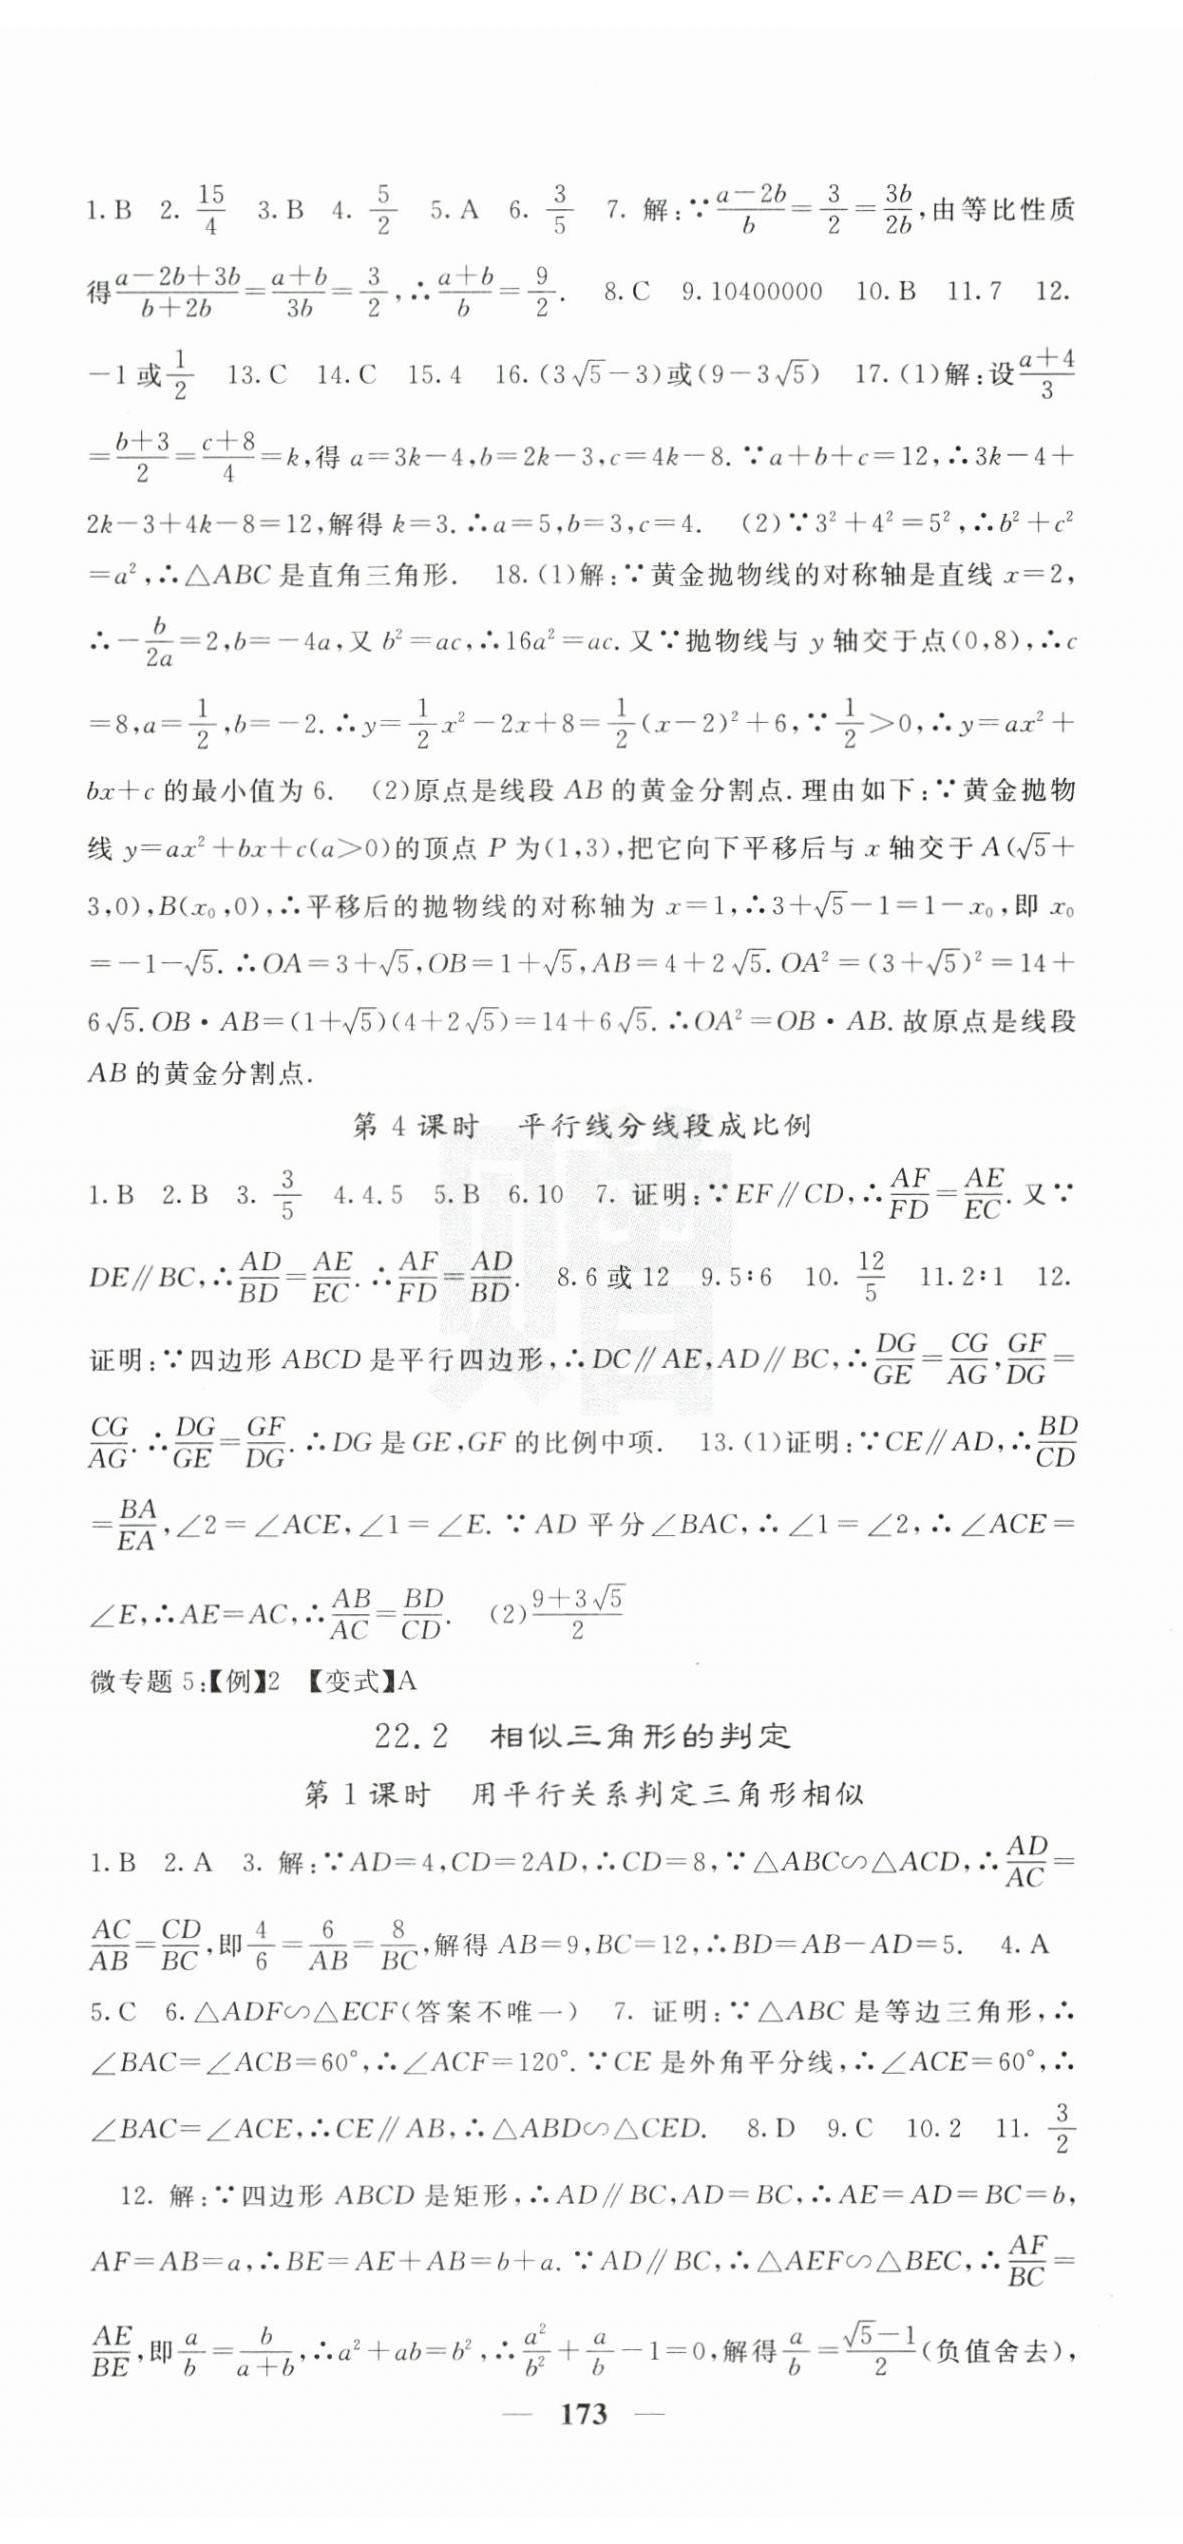 1. B 2. 15/4 3. B 4. 5/2 5. A 6. 3/5 7. 解:∵(a-2b)/b=3/2=3b/2b,由等比性质
得(a-2b+3b)/(b+2b)=(a+b)/3b=3/2,∴(a+b)/b=9/2. 8. C 9. 10400000 10. B 11. 7 12.
-1或1/2 13. C 14. C 15. 4 16. (3√5-3)或(9-3√5) 17. (1)解:设(a+4)/3
=(b+3)/2=(c+8)/4=k,得 a=3k-4,b=2k-3,c=4k-8. ∵a+b+c=12,∴3k-4+
2k-3+4k-8=12,解得 k=3. ∴a=5,b=3,c=4. (2)∵3²+4²=5²,∴b²+c²
=a²,∴△ABC 是直角三角形. 18. (1)解:∵黄金抛物线的对称轴是直线 x=2,
∴-b/2a=2,b=-4a,又 b²=ac,∴16a²=ac. 又∵抛物线与 y 轴交于点(0,8),∴c
=8,a=1/2,b=-2. ∴y=1/2x²-2x+8=1/2(x-2)²+6,∵1/2>0,∴y=ax²+
bx+c 的最小值为 6. (2)原点是线段 AB 的黄金分割点. 理由如下:∵黄金抛物
线 y=ax²+bx+c(a>0)的顶点 P 为(1,3),把它向下平移后与 x 轴交于 A(√5+
3,0),B(x₀,0),∴平移后的抛物线的对称轴为 x=1,∴3+√5-1=1-x₀,即 x₀
=-1-√5. ∴OA=3+√5,OB=1+√5,AB=4+2√5. OA²=(3+√5)²=14+
6√5. OB·AB=(1+√5)(4+2√5)=14+6√5. ∴OA²=OB·AB. 故原点是线段
AB 的黄金分割点.
第 4 课时 平行线分线段成比例
1. B 2. B 3. 3/5 4. 4.5 5. B 6. 10 7. 证明:∵EF∥CD,∴AF/FD=AE/EC. 又∵
DE∥BC,∴AD/BD=AE/EC. ∴AF/FD=AD/BD. 8. 6 或 12 9. 5∶6 10. 12/5 11. 2∶1 12.
证明:∵四边形 ABCD 是平行四边形,∴DC∥AE,AD∥BC,∴DG/GE=CG/AG,GF/DG=
CG/AG. ∴DG/GE=GF/DG. ∴DG 是 GE,GF 的比例中项. 13. (1)证明:∵CE∥AD,∴BD/CD
=BA/EA,∠2=∠ACE,∠1=∠E. ∵AD 平分∠BAC,∴∠1=∠2,∴∠ACE=
∠E,∴AE=AC,∴AB/AC=BD/CD. (2)(9+3√5)/2
微专题 5:【例】2 【变式】A
22.2 相似三角形的判定
第 1 课时 用平行关系判定三角形相似
1. B 2. A 3. 解:∵AD=4,CD=2AD,∴CD=8,∵△ABC∽△ACD,∴AD/AC=
AC/AB=CD/BC,即4/6=6/AB=8/BC,解得 AB=9,BC=12,∴BD=AB-AD=5. 4. A
5. C 6. △ADF∽△ECF(答案不唯一) 7. 证明:∵△ABC 是等边三角形,∴
∠BAC=∠ACB=60°,∴∠ACF=120°. ∵CE 是外角平分线,∴∠ACE=60°,∴
∠BAC=∠ACE,∴CE∥AB,∴△ABD∽△CED. 8. D 9. C 10. 2 11. 3/2
12. 解:∵四边形 ABCD 是矩形,∴AD∥BC,AD=BC,∴AE=AD=BC=b,
AF=AB=a,∴BE=AE+AB=b+a. ∵AD∥BC,∴△AEF∽△BEC,∴AF/BC=
AE/BE,即a/b=b/(a+b),∴a²+ab=b²,∴a²/b²+a/b-1=0,解得a/b=(√5-1)/2(负值舍去),
— 173 —